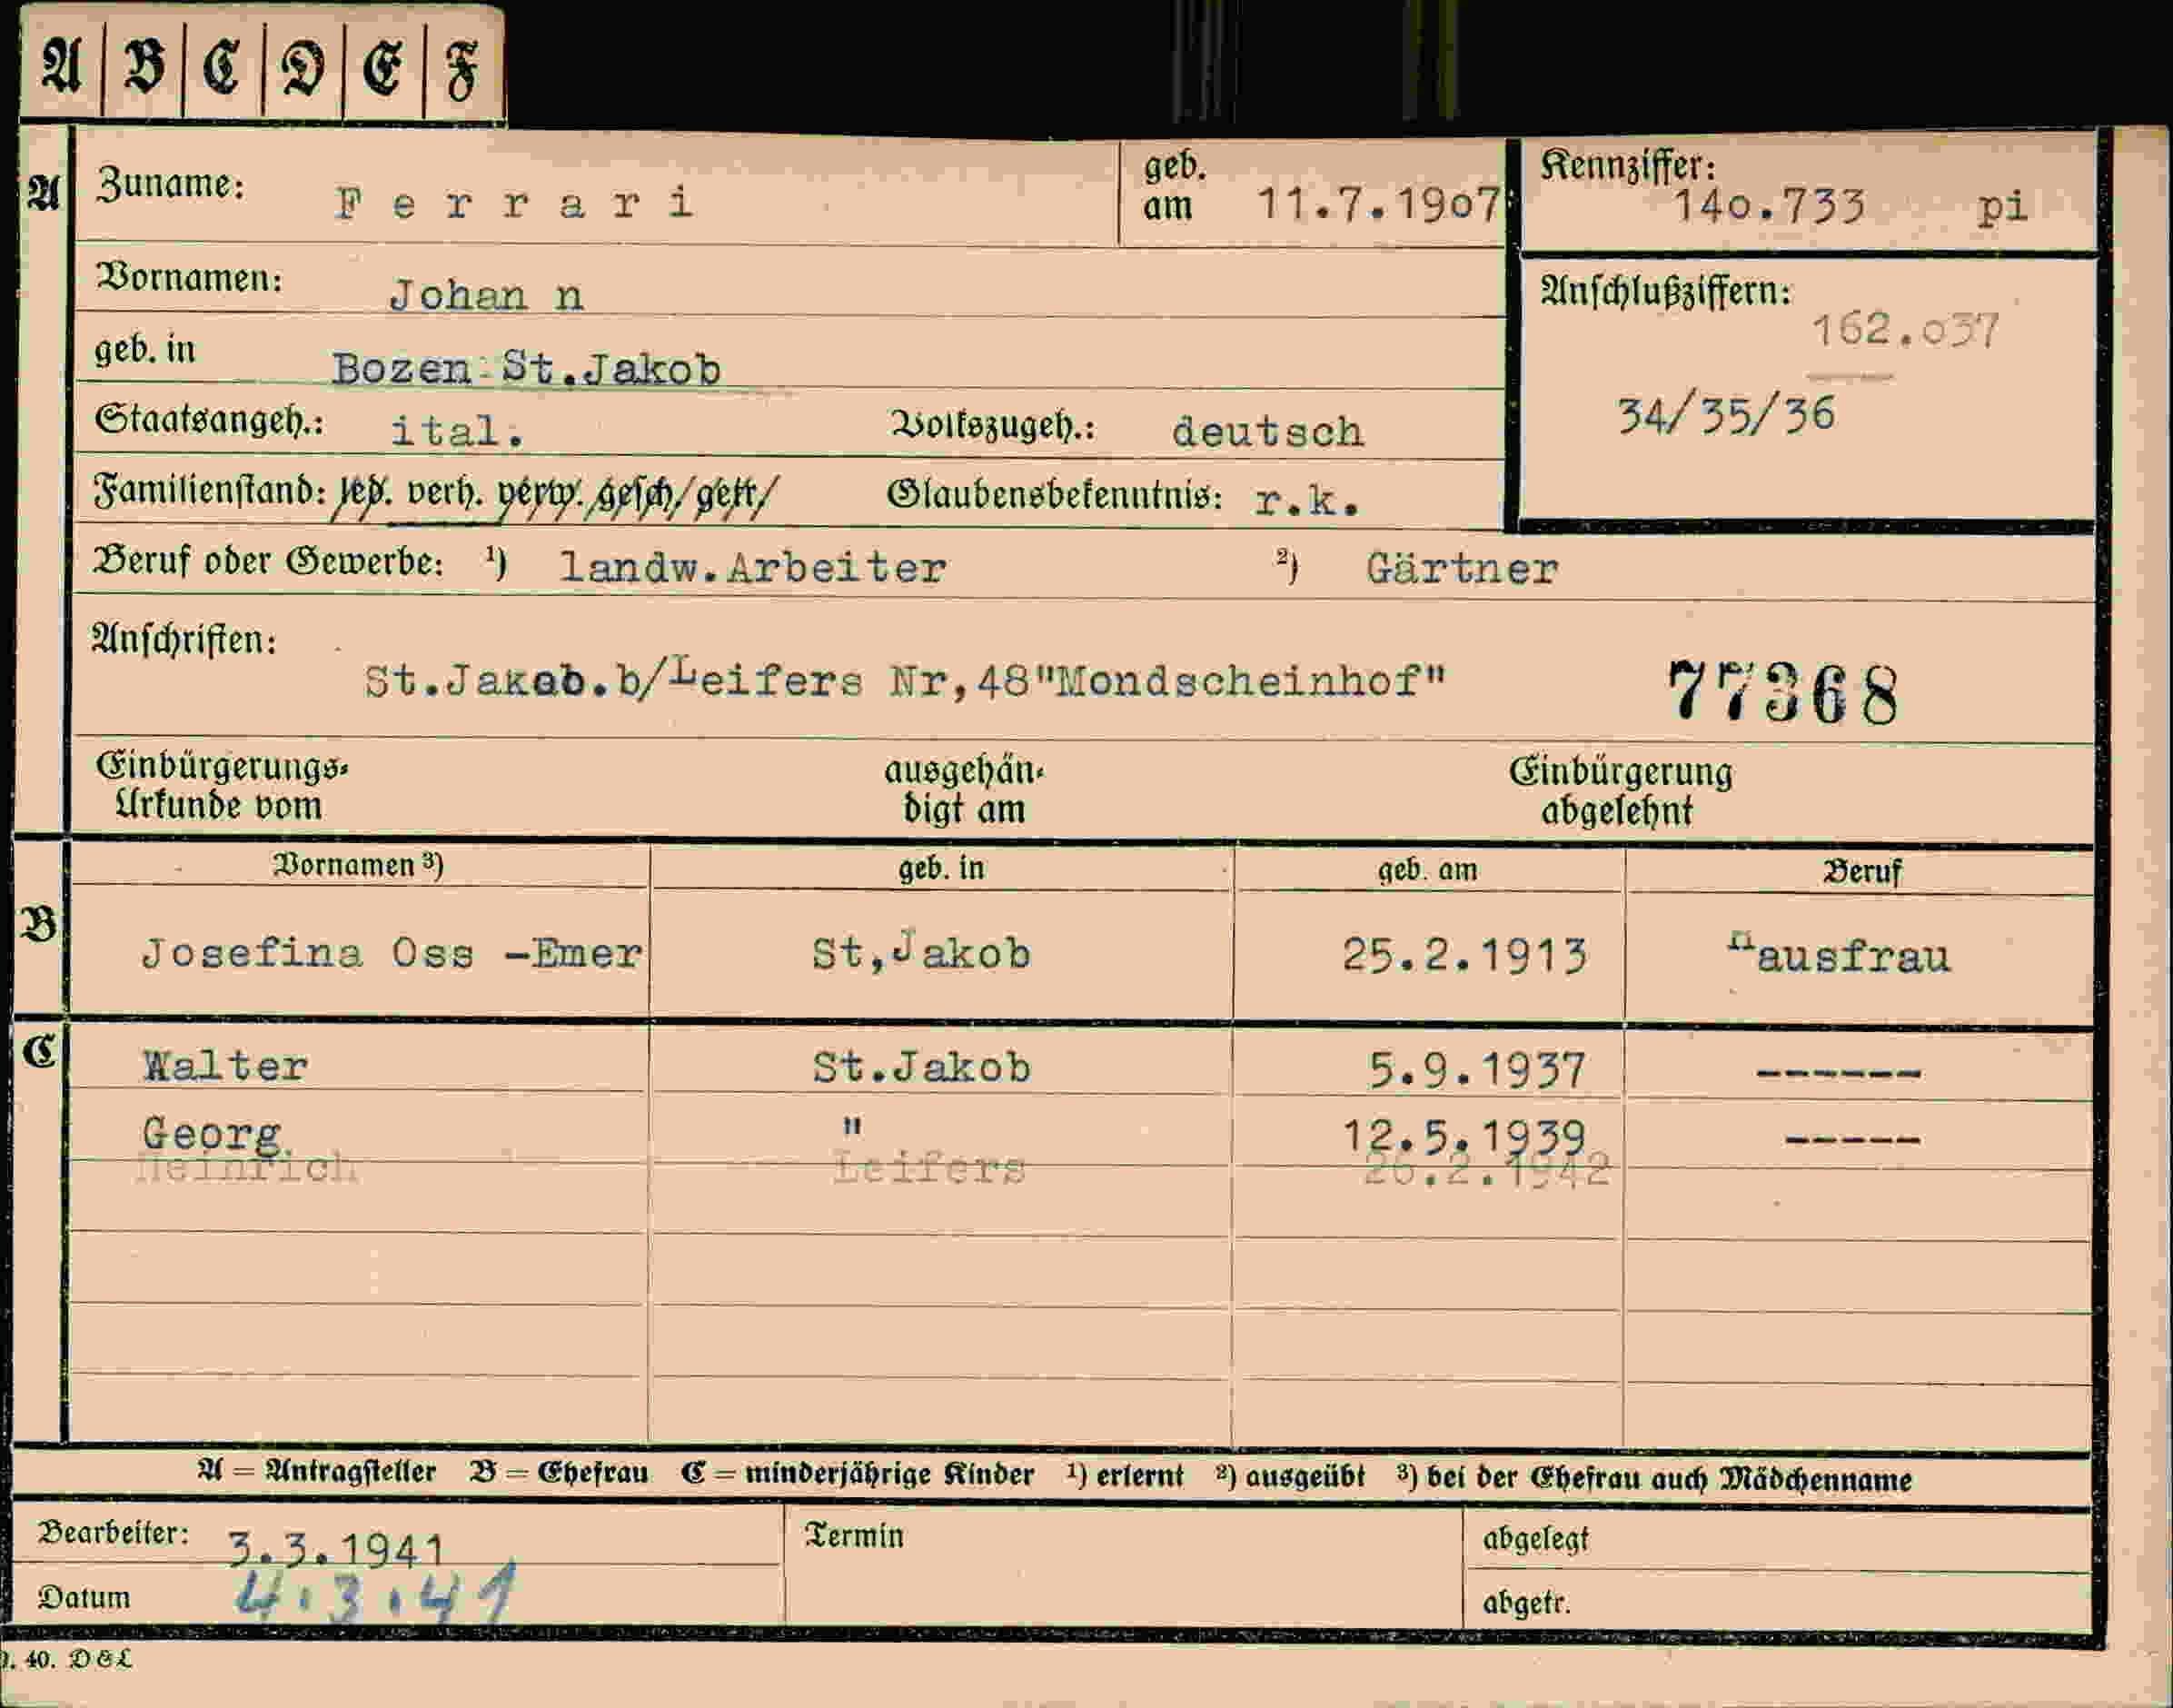 A B C D E F
A Zuname: Ferrari geb. am 11.7.19o7 Kennziffer: 14o.733 pi
Vornamen: Johan n
Anschlußziffern: 162.o37
geb. in Bozen St.Jakob
34/35/36
Staatsangeh.: ital. Volkszugeh.: deutsch
Familienstand: led. verh. verw. gesch/ gett/ Glaubensbekenntnis: r.k.
Beruf oder Gewerbe: ¹) landw.Arbeiter ²) Gärtner
Anschriften:
St.Jakob.b/Leifers Nr,48"Mondscheinhof" 77368
Einbürgerungs- ausgehän- Einbürgerung
Urkunde vom digt am abgelehnt
Vornamen ³) geb. in geb. am Beruf
B Josefina Oss -Emer St,Jakob 25.2.1913 Hausfrau
C Walter St.Jakob 5.9.1937 ------
Georg. " 12.5.1939 -----
Heinrich Leifers 26.2.1942
A = Antragsteller B = Ehefrau C = minderjährige Kinder ¹) erlernt ²) ausgeübt ³) bei der Ehefrau auch Mädchenname
Bearbeiter: 3.3.1941 Termin abgelegt
Datum 4.3.41 abgetr.
40. D & L